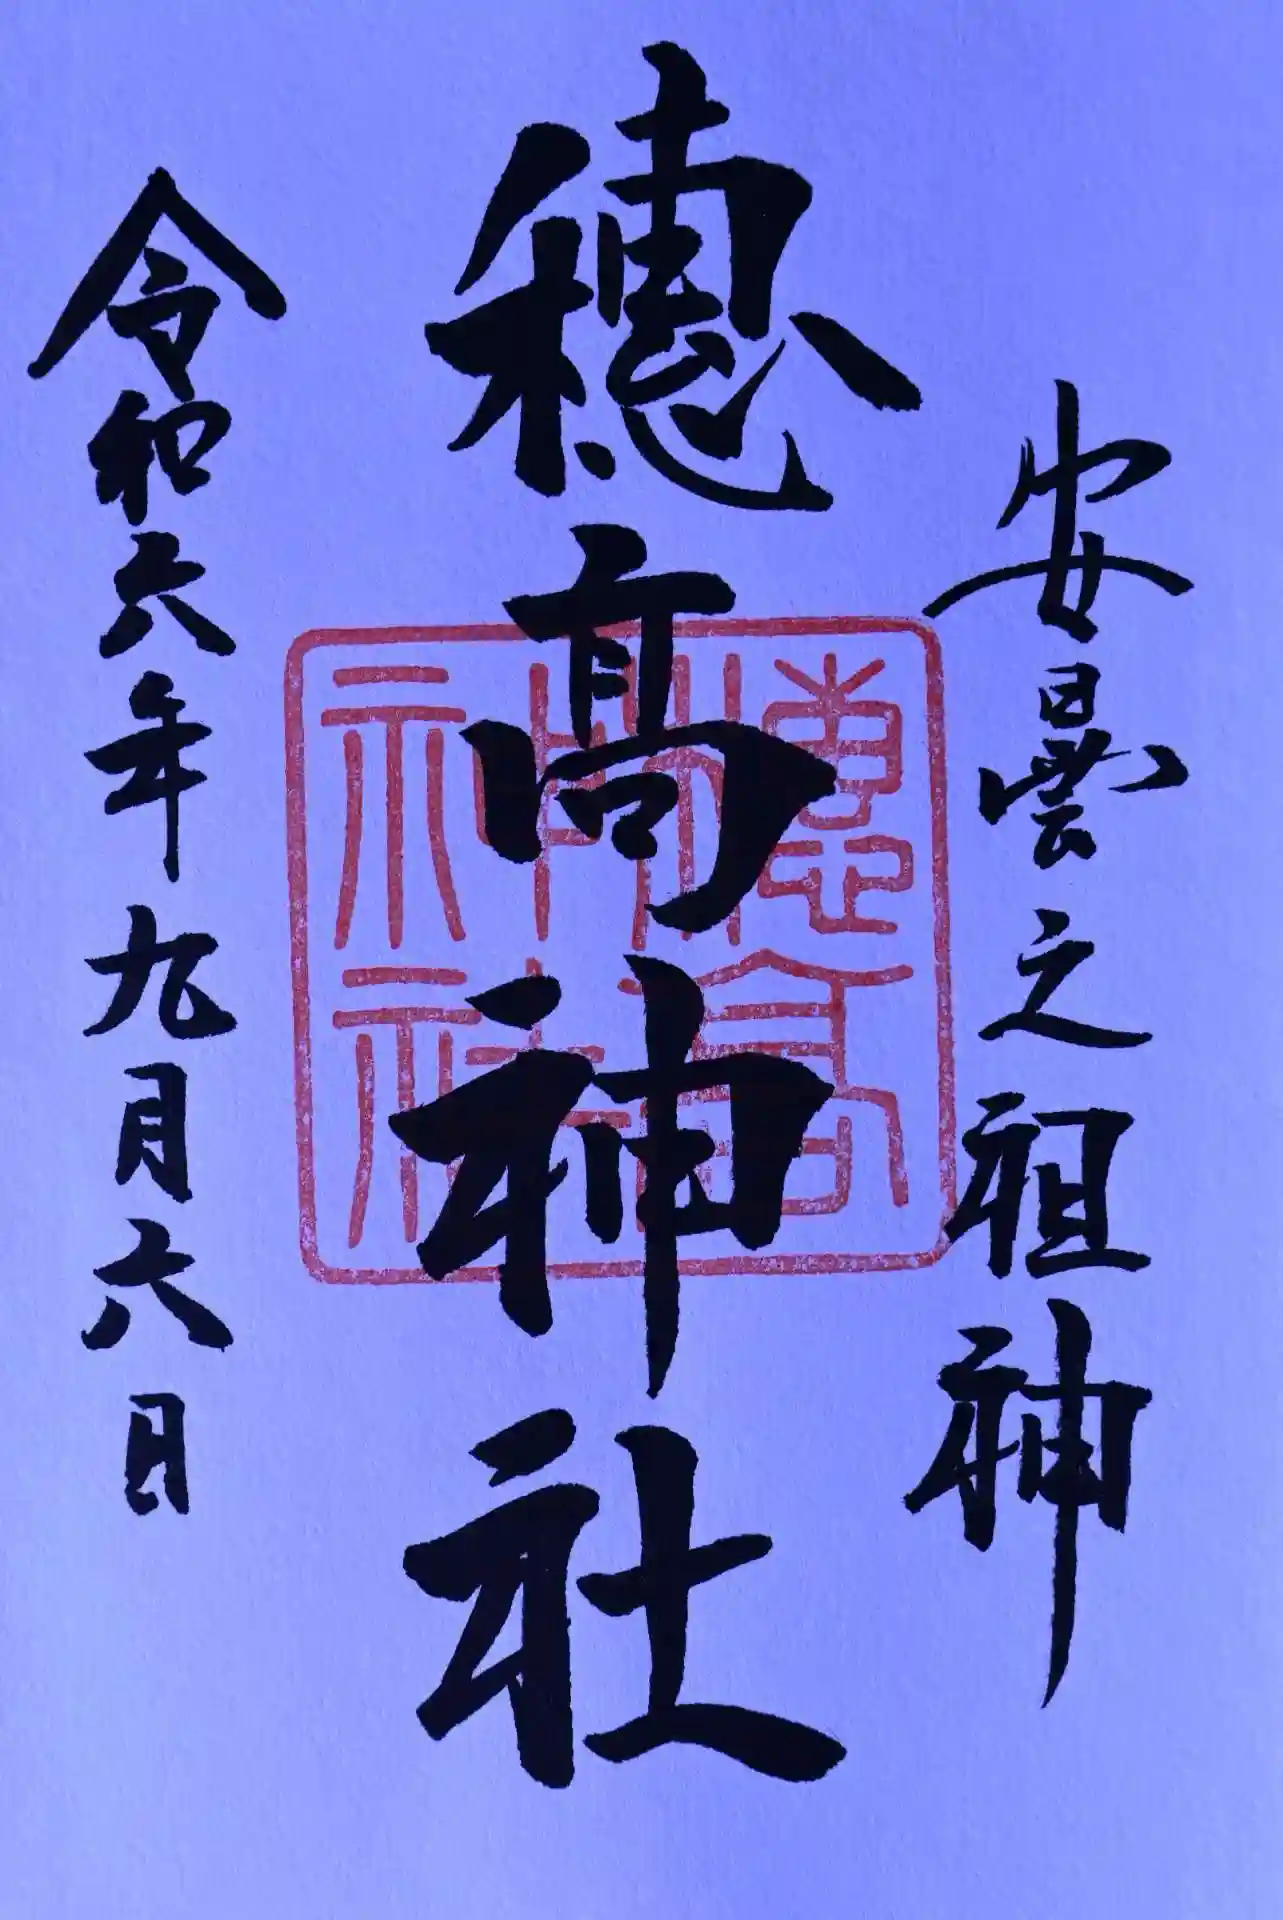 安曇之祖神
穂高神社
穂高神社
令和六年九月六日